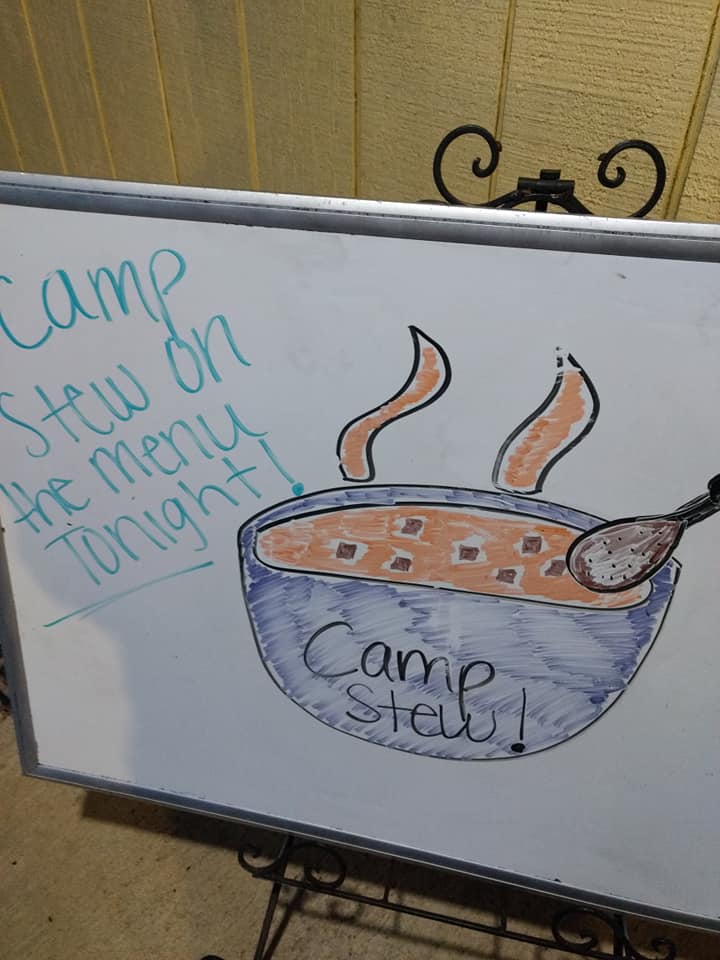 Camp
Stew on
the menu
Tonight!
Camp
Stew!